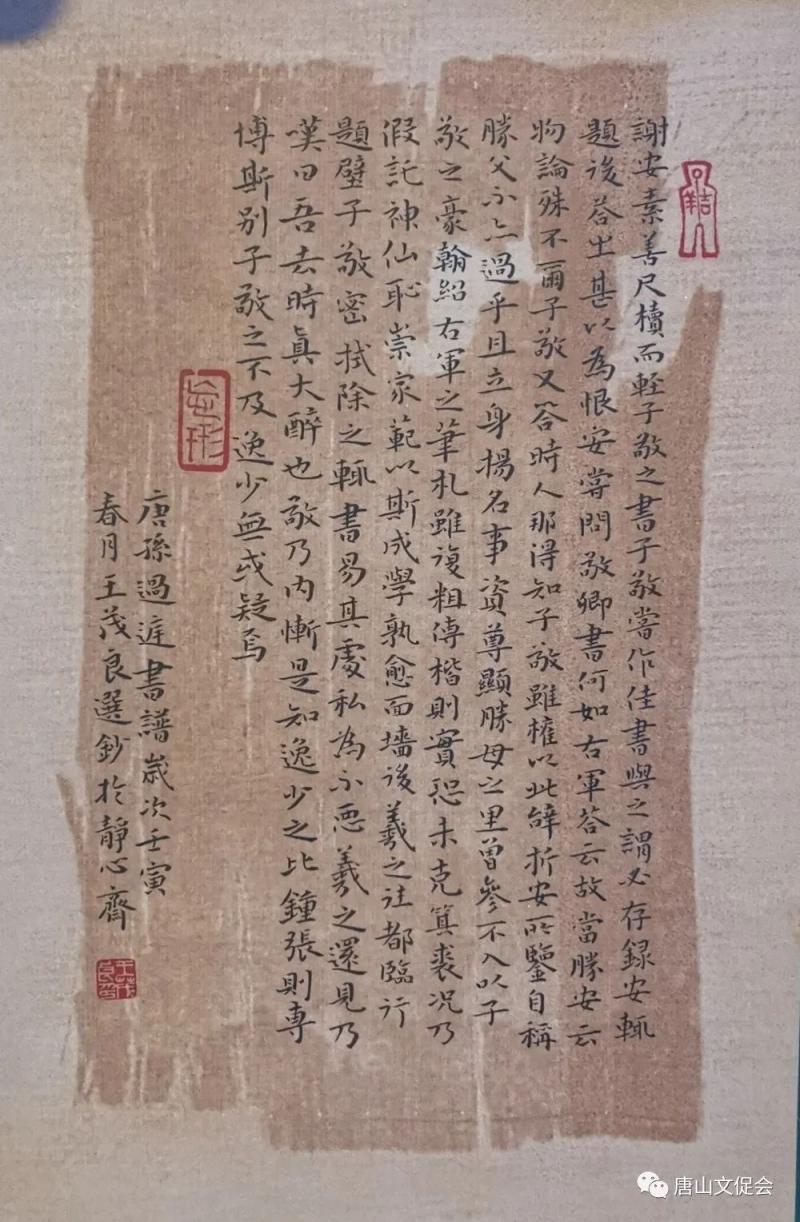 謝安素善尺牘而輕子敬之書子敬嘗作佳書與之謂必存録安輒
題後荅之甚以為恨安嘗問敬卿書何如右軍荅云故當勝安云
物論殊不爾子敬又荅時人那得知子敬雖權以此辭折安所鑒自稱
勝父不亦過乎且立身揚名事資尊顯勝母之里曾參不入以子
敬之豪翰紹右軍之筆札雖復粗傳楷則實恐未克箕裘况乃
假託神仙恥崇家範以斯成學孰愈面墻後羲之往都臨行
題壁子敬密拭除之輒書易其處私為不惡羲之還見乃
嘆曰吾去時真大醉也敬乃内慚是知逸少之比鍾張則專
博斯别子敬之不及逸少無或疑焉
唐孫過庭書譜歲次壬寅
春月王茂良選鈔於靜心齋
唐山文促会